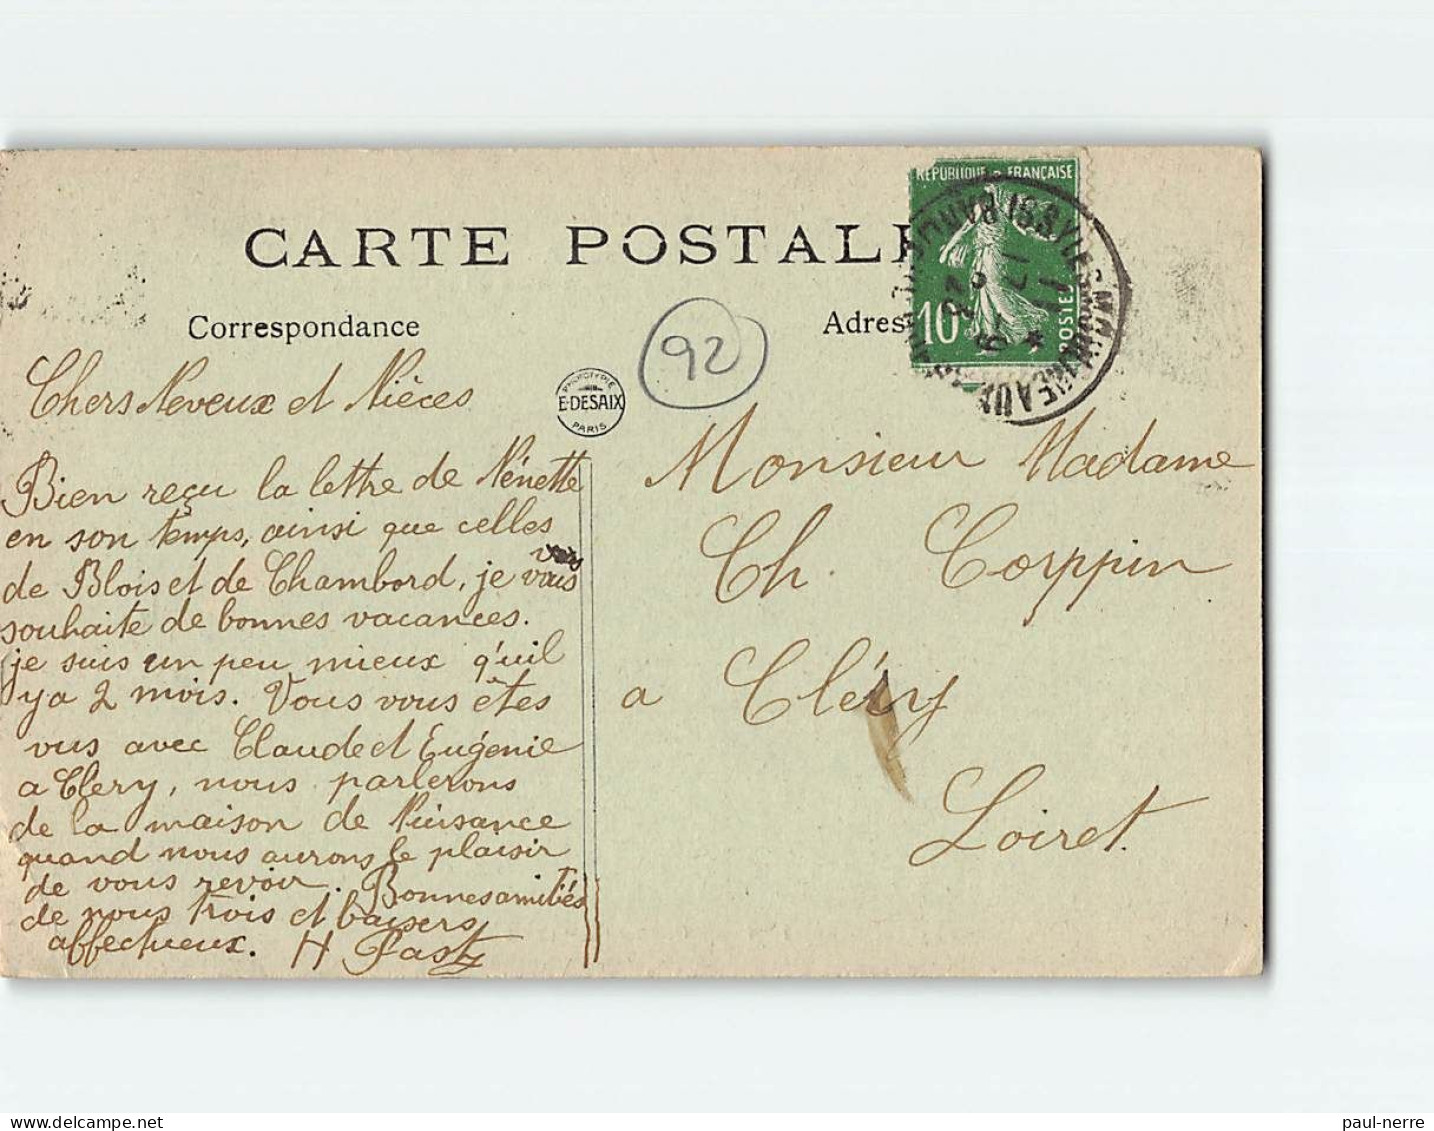 CARTE POSTALE
Correspondance
Adres
92
RÉPUBLIQUE FRANÇAISE
10
POSTES
PHOTOTYPIE
E. DESAIX
PARIS
Chers Neveux et Nièces
Bien reçu la lettre de Nénette
en son temps, ainsi que celles
de Blois et de Chambord, je vous
souhaite de bonnes vacances.
je suis un peu mieux q'uil
y a 2 mois. Vous vous êtes
vus avec Claude et Eugénie
a Clery, nous parlerons
de la maison de Nuisance
quand nous aurons le plaisir
de vous revoir. Bonnes amitiés
de nous trois et baisers
affectueux. H
Monsieur Madame
Ch. Corppin
a Cléry
Loiret.
delcampe.net
paul-nerre